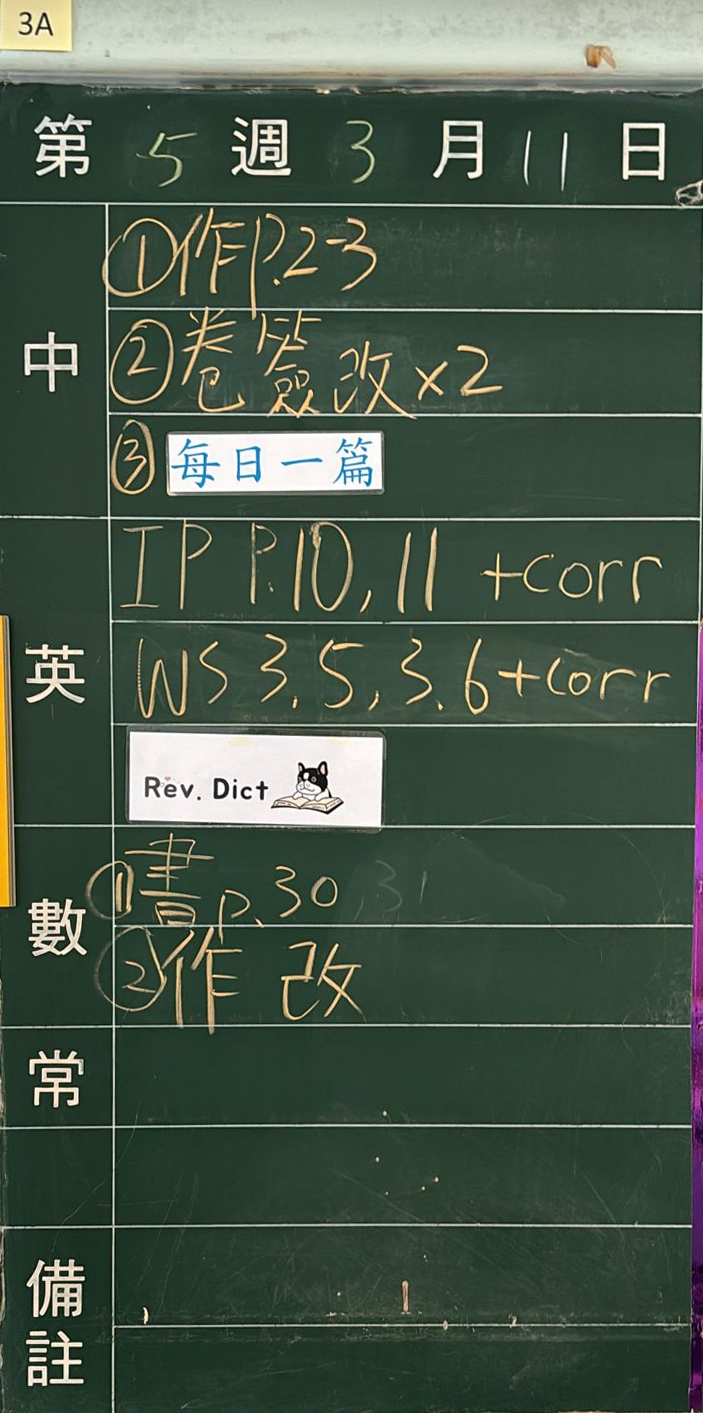 3A
第 5 週 3 月 11 日
中
①作P.2-3
②卷簽改×2
③每日一篇
英
IP P.10, 11 +corr
WS 3.5, 3.6+corr
Rev. Dict
數
①書p.30
②作 改
常
備註